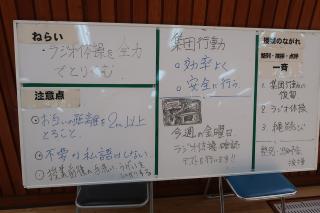 ねらい
・ラジオ体操を全力
でとりくむ!
注意点
①お互いの距離を2m以上
とること。
②不要な私語はしない。
集団行動
○効率よく
○安全に行う
今週の金曜日
ラジオ体操確認
テストを行います!!
後半のながれ
整列・挨拶・点呼
一斉
1.集団行動の
復習
2.ラジオ体操
3.縄跳び